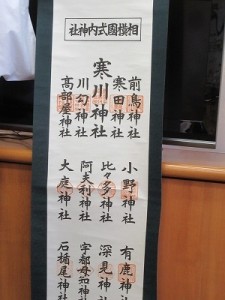 相模國式内神社
前鳥神社
寒田神社
寒川神社
川勾神社
高部屋神社
小野神社
比々多神社
阿夫利神社
大庭神社
有鹿神社
深見神社
宇都母知神
石楯尾神社